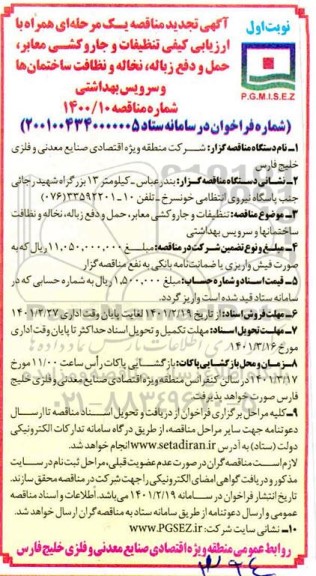 نوبت اول
آگهی تجدید مناقصه یک مرحله‌ای همراه با
ارزیابی کیفی تنظیفات و جاروکشی معابر،
حمل و دفع زباله، نخاله و نظافت ساختمان‌ها
و سرویس بهداشتی
شماره مناقصه ۱۴۰۰/۱۰
P.G.M.I.S.E.Z
(شماره فراخوان در سامانه ستاد ۲۰۰۱۰۰۴۳۴۰۰۰۰۰۰۵)
۱ـ نام دستگاه مناقصه گزار: شرکت منطقه ویژه اقتصادی صنایع معدنی و فلزی
خلیج فارس
۲ـ نشانی دستگاه مناقصه گزار: بندرعباس ـ کیلومتر ۱۳ بزرگراه شهید رجائی
جنب پاسگاه نیروی انتظامی خونسرخ ـ تلفن ۱۰ـ۳۳۵۹۲۲۰۱(۰۷۶)
۳ـ موضوع مناقصه: تنظیفات و جاروکشی معابر، حمل و دفع زباله، نخاله و نظافت
ساختمانها و سرویس بهداشتی
۴ـ مبلغ و نوع تضمین شرکت در مناقصه: مبلغ ۱۱,۰۵۰,۰۰۰,۰۰۰ ریال که به
صورت فیش واریزی یا ضمانت‌نامه بانکی به نفع مناقصه گزار
۵ـ قیمت اسناد و شماره حساب: مبلغ ۱,۵۰۰,۰۰۰ ریال به شماره حسابی که در
سامانه ستاد قید شده است واریز گردد.
۶ـ مهلت فروش اسناد: از تاریخ ۱۴۰۱/۲/۱۹ لغایت پایان وقت اداری ۱۴۰۱/۲/۲۷
۷ـ مهلت تحویل اسناد: مهلت تکمیل و تحویل اسناد حداکثر تا پایان وقت اداری
مورخ ۱۴۰۱/۳/۱۶
۸ـ زمان و محل بازگشایی پاکات: بازگشایی پاکات رأس ساعت ۱۱/۰۰ مورخ
۱۴۰۱/۳/۱۷ در سالن کنفرانس منطقه ویژه اقتصادی صنایع معدنی و فلزی خلیج
فارس صورت خواهد پذیرفت.
۹ـ کلیه مراحل برگزاری فراخوان از دریافت و تحویل اسناد مناقصه تا ارسال
دعوتنامه جهت سایر مراحل مناقصه، از طریق درگاه سامانه تدارکات الکترونیکی
دولت (ستاد) به آدرس www.setadiran.ir انجام خواهد شد.
لازم است مناقصه گران در صورت عدم عضویت قبلی، مراحل ثبت نام در سایت
مذکور و دریافت گواهی امضای الکترونیکی را جهت شرکت در مناقصه محقق سازند.
تاریخ انتشار فراخوان در سامانه ۱۴۰۱/۲/۱۹ می‌باشد. اطلاعات و اسناد مناقصه
عمومی و ارسال دعوتنامه از طریق سامانه ستاد به مناقصه گران ارسال خواهد شد.
۱۰ـ نشانی سایت شرکت: www.PGSEZ.ir
روابط عمومی منطقه ویژه اقتصادی صنایع معدنی و فلزی خلیج فارس